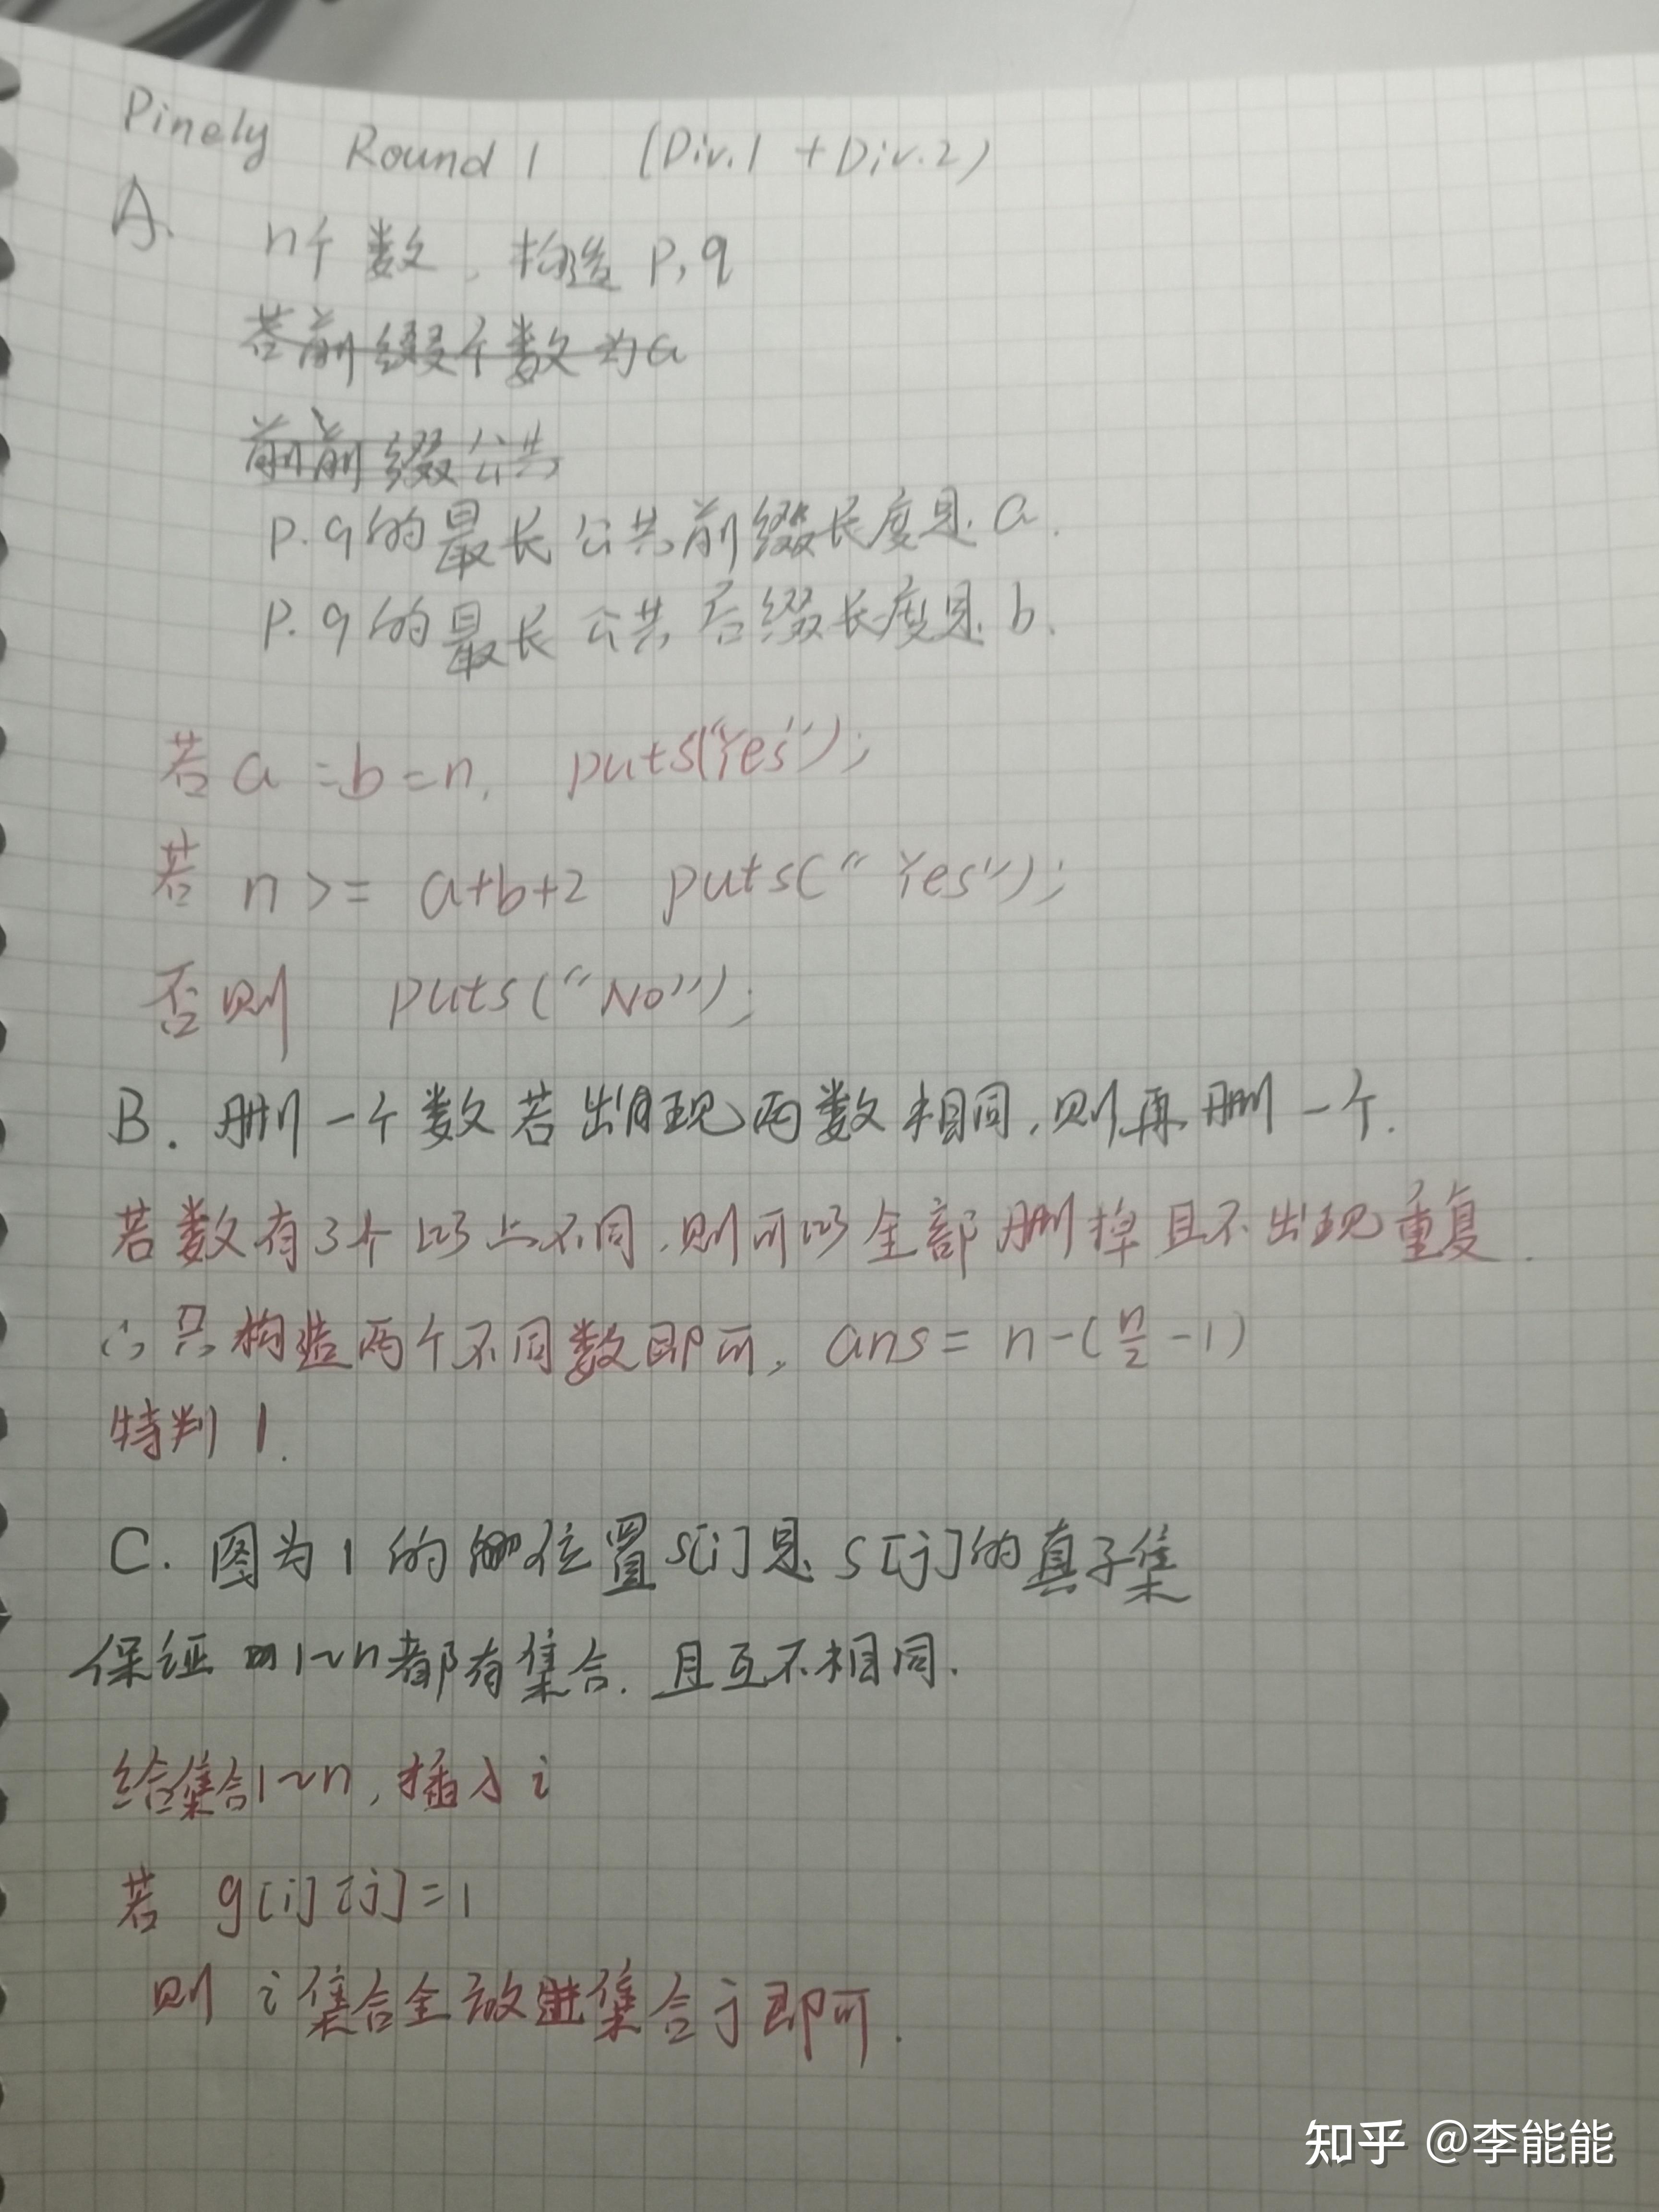 Pinely Round 1 (Div.1 + Div.2)
A.
n个数，构造 p,q
若前缀个数为a
前前缀公共
p.q的最长公共前缀长度是a.
p.q的最长公共后缀长度是b.
若a=b=n, puts("Yes");
若 n>= a+b+2 puts("Yes");
否则 puts("No");
B. 删一个数若出现两数相同,则再删一个.
若数有3个以上不同,则可以全部删掉且不出现重复.
∴只构造两个不同数即可, ans= n-(n/2 -1)
特判1.
C. 图为1的位置s[i]是s[j]的真子集
保证1~n都有集合.且互不相同.
给集合1~n,插入i
若 g[i][j]=1
则 i集合全放进集合j即可.
知乎 @李能能